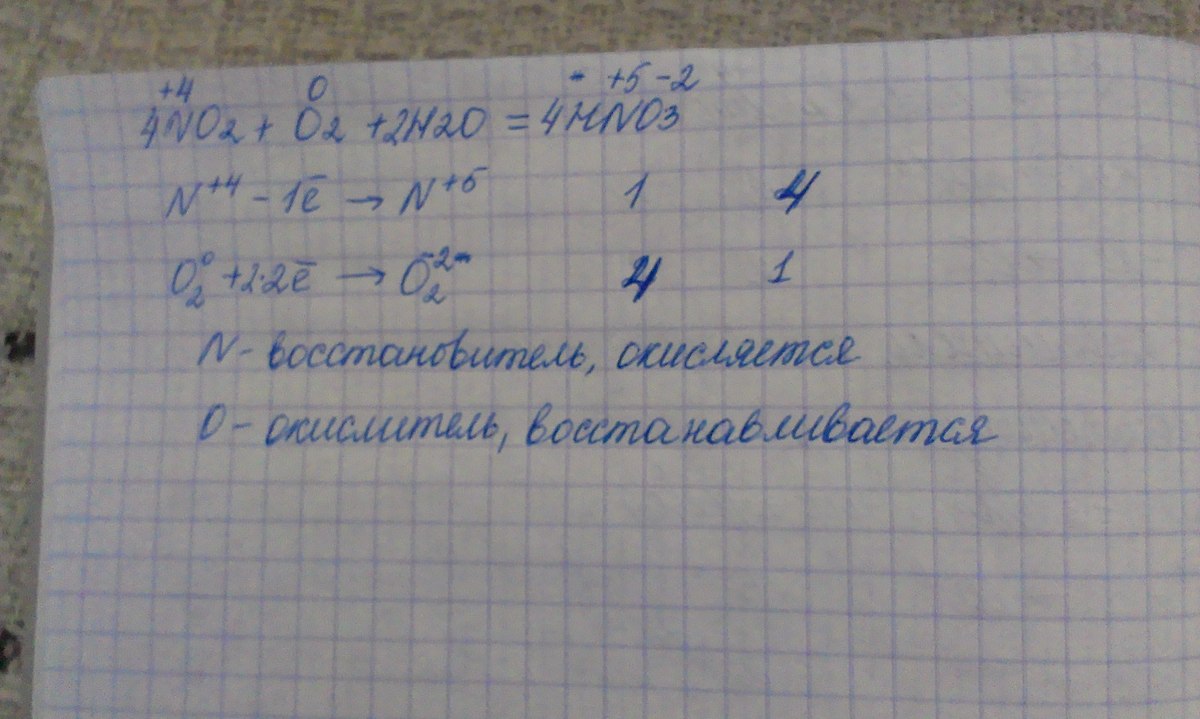 +4 0 - +5 -2
4NO2 + O2 + 2H2O = 4HNO3
N+4 - 1ē → N+5 1 4
O2 0 + 2·2ē → O2 -2 4 1
N - восстановитель, окисляется
O - окислитель, восстанавливается